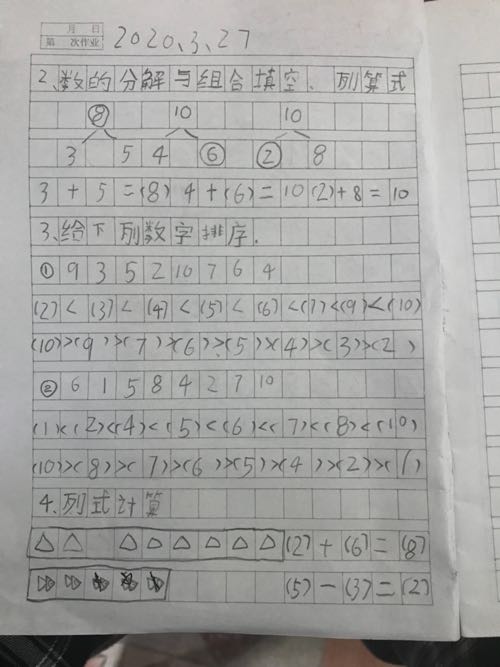 月 日
第 次作业 2020.3.27
2.数的分解与组合填空. 列算式
8 10 10
3 5 4 6 2 8
3+5=(8) 4+(6)=10 (2)+8=10
3.给下列数字排序.
① 9 3 5 2 10 7 6 4
(2)<(3)<(4)<(5)<(6)<(7)<(9)<(10)
(10)>(9)>(7)>(6)>(5)>(4)>(3)>(2)
② 6 1 5 8 4 2 7 10
(1)<(2)<(4)<(5)<(6)<(7)<(8)<(10)
(10)>(8)>(7)>(6)>(5)>(4)>(2)>(1)
4.列式计算
(2)+(6)=(8)
(5)-(3)=(2)